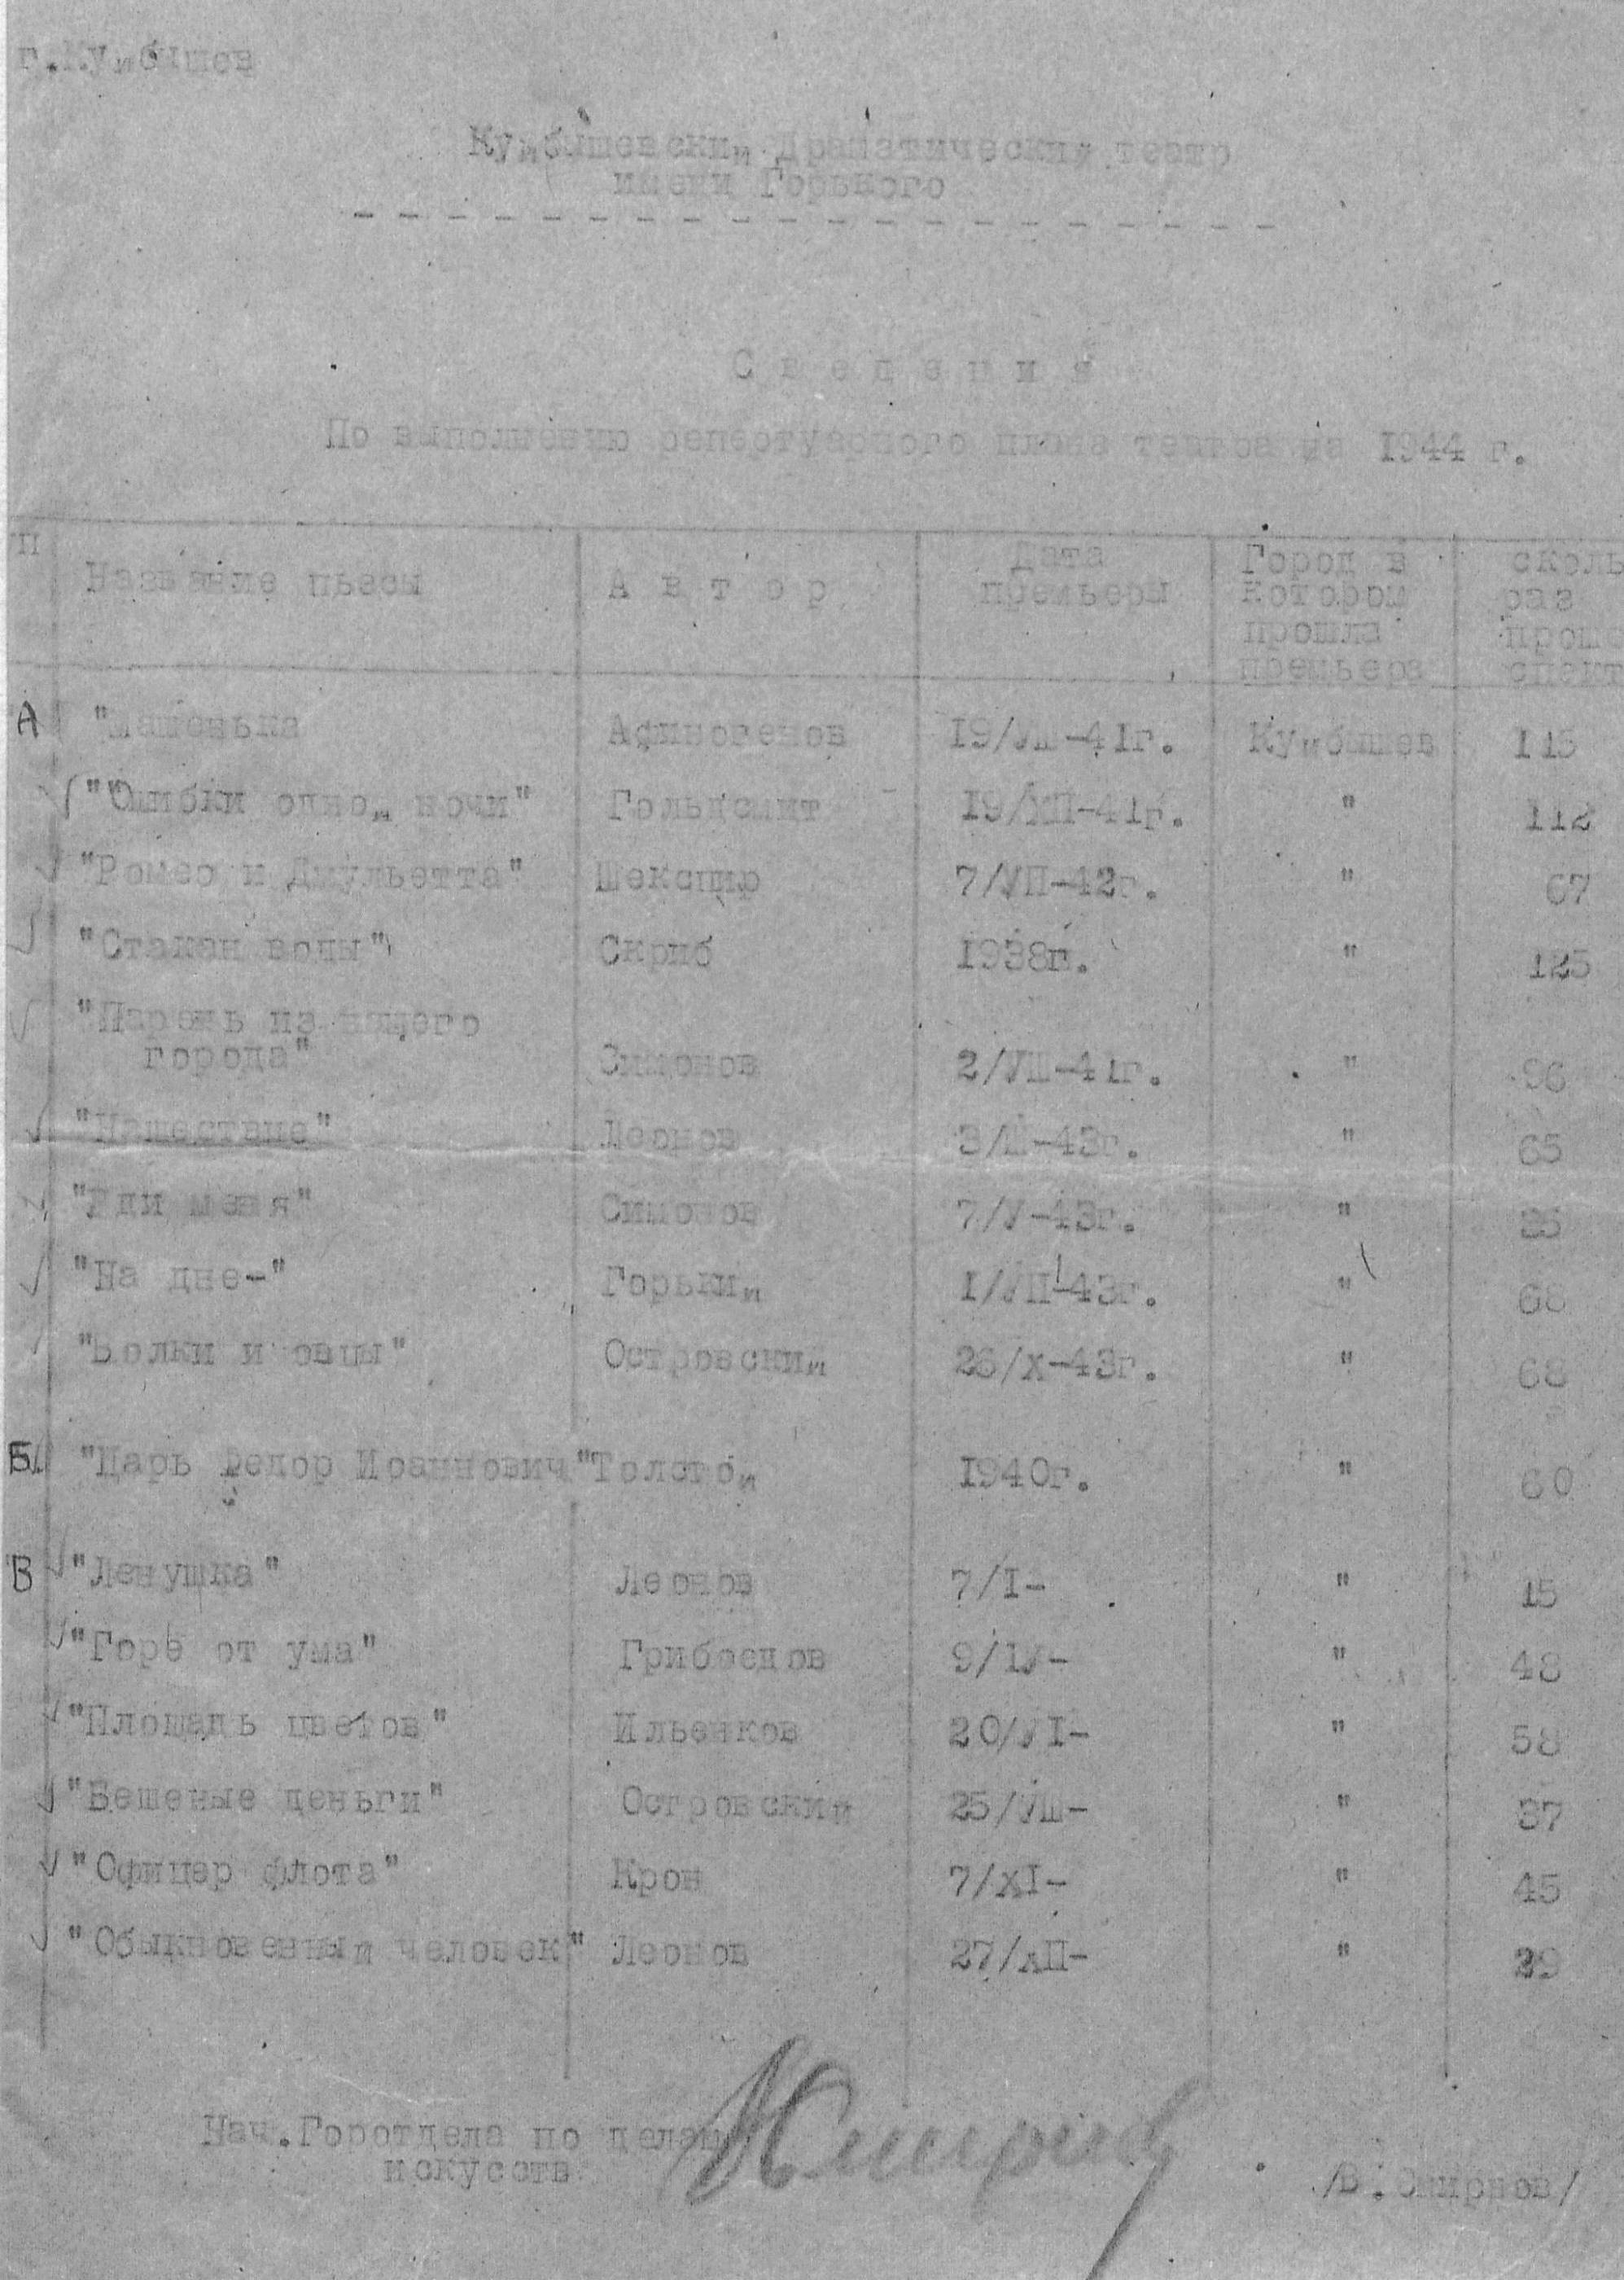 г.Куйбышев
Куйбышевский Драматический театр
имени Горького
С в е д е н и я
По выполнению репертуарного плана театра на 1944 г.
П
Название пьесы А в т о р Дата премьеры Город в котором прошла премьера сколь раз прош спект
А "Машенька Афиногенов 19/УШ-41г. Куйбышев 115
"Ошибки одной ночи" Гольдсмит 19/ХП-41г. " 112
"Ромео и Джульетта" Шекспир 7/УП-42г. " 67
"Стакан воды" Скриб 1938г. " 125
"Парень из нашего
города" Симонов 2/УШ-41г. " 96
"Нашествие" Леонов 3/Ш-43г. " 65
"Жди меня" Симонов 7/У-43г. "
"На дне-" Горький I/УП-43г. " 68
"Волки и овцы" Островский 26/Х-43г. " 68
Б "Царь Федор Иоаннович" Толстой 1940г. " 60
В "Ленушка" Леонов 7/I- " 15
"Горе от ума" Грибоедов 9/IУ- " 48
"Площадь цветов" Ильенков 20/УI- " 58
"Бешеные деньги" Островский 25/УШ- " 37
"Офицер флота" Крон 7/ХI- " 45
"Обыкновенный человек" Леонов 27/ХП- " 29
Нач.Горотдела по делам
искусств
/В.Смирнов/